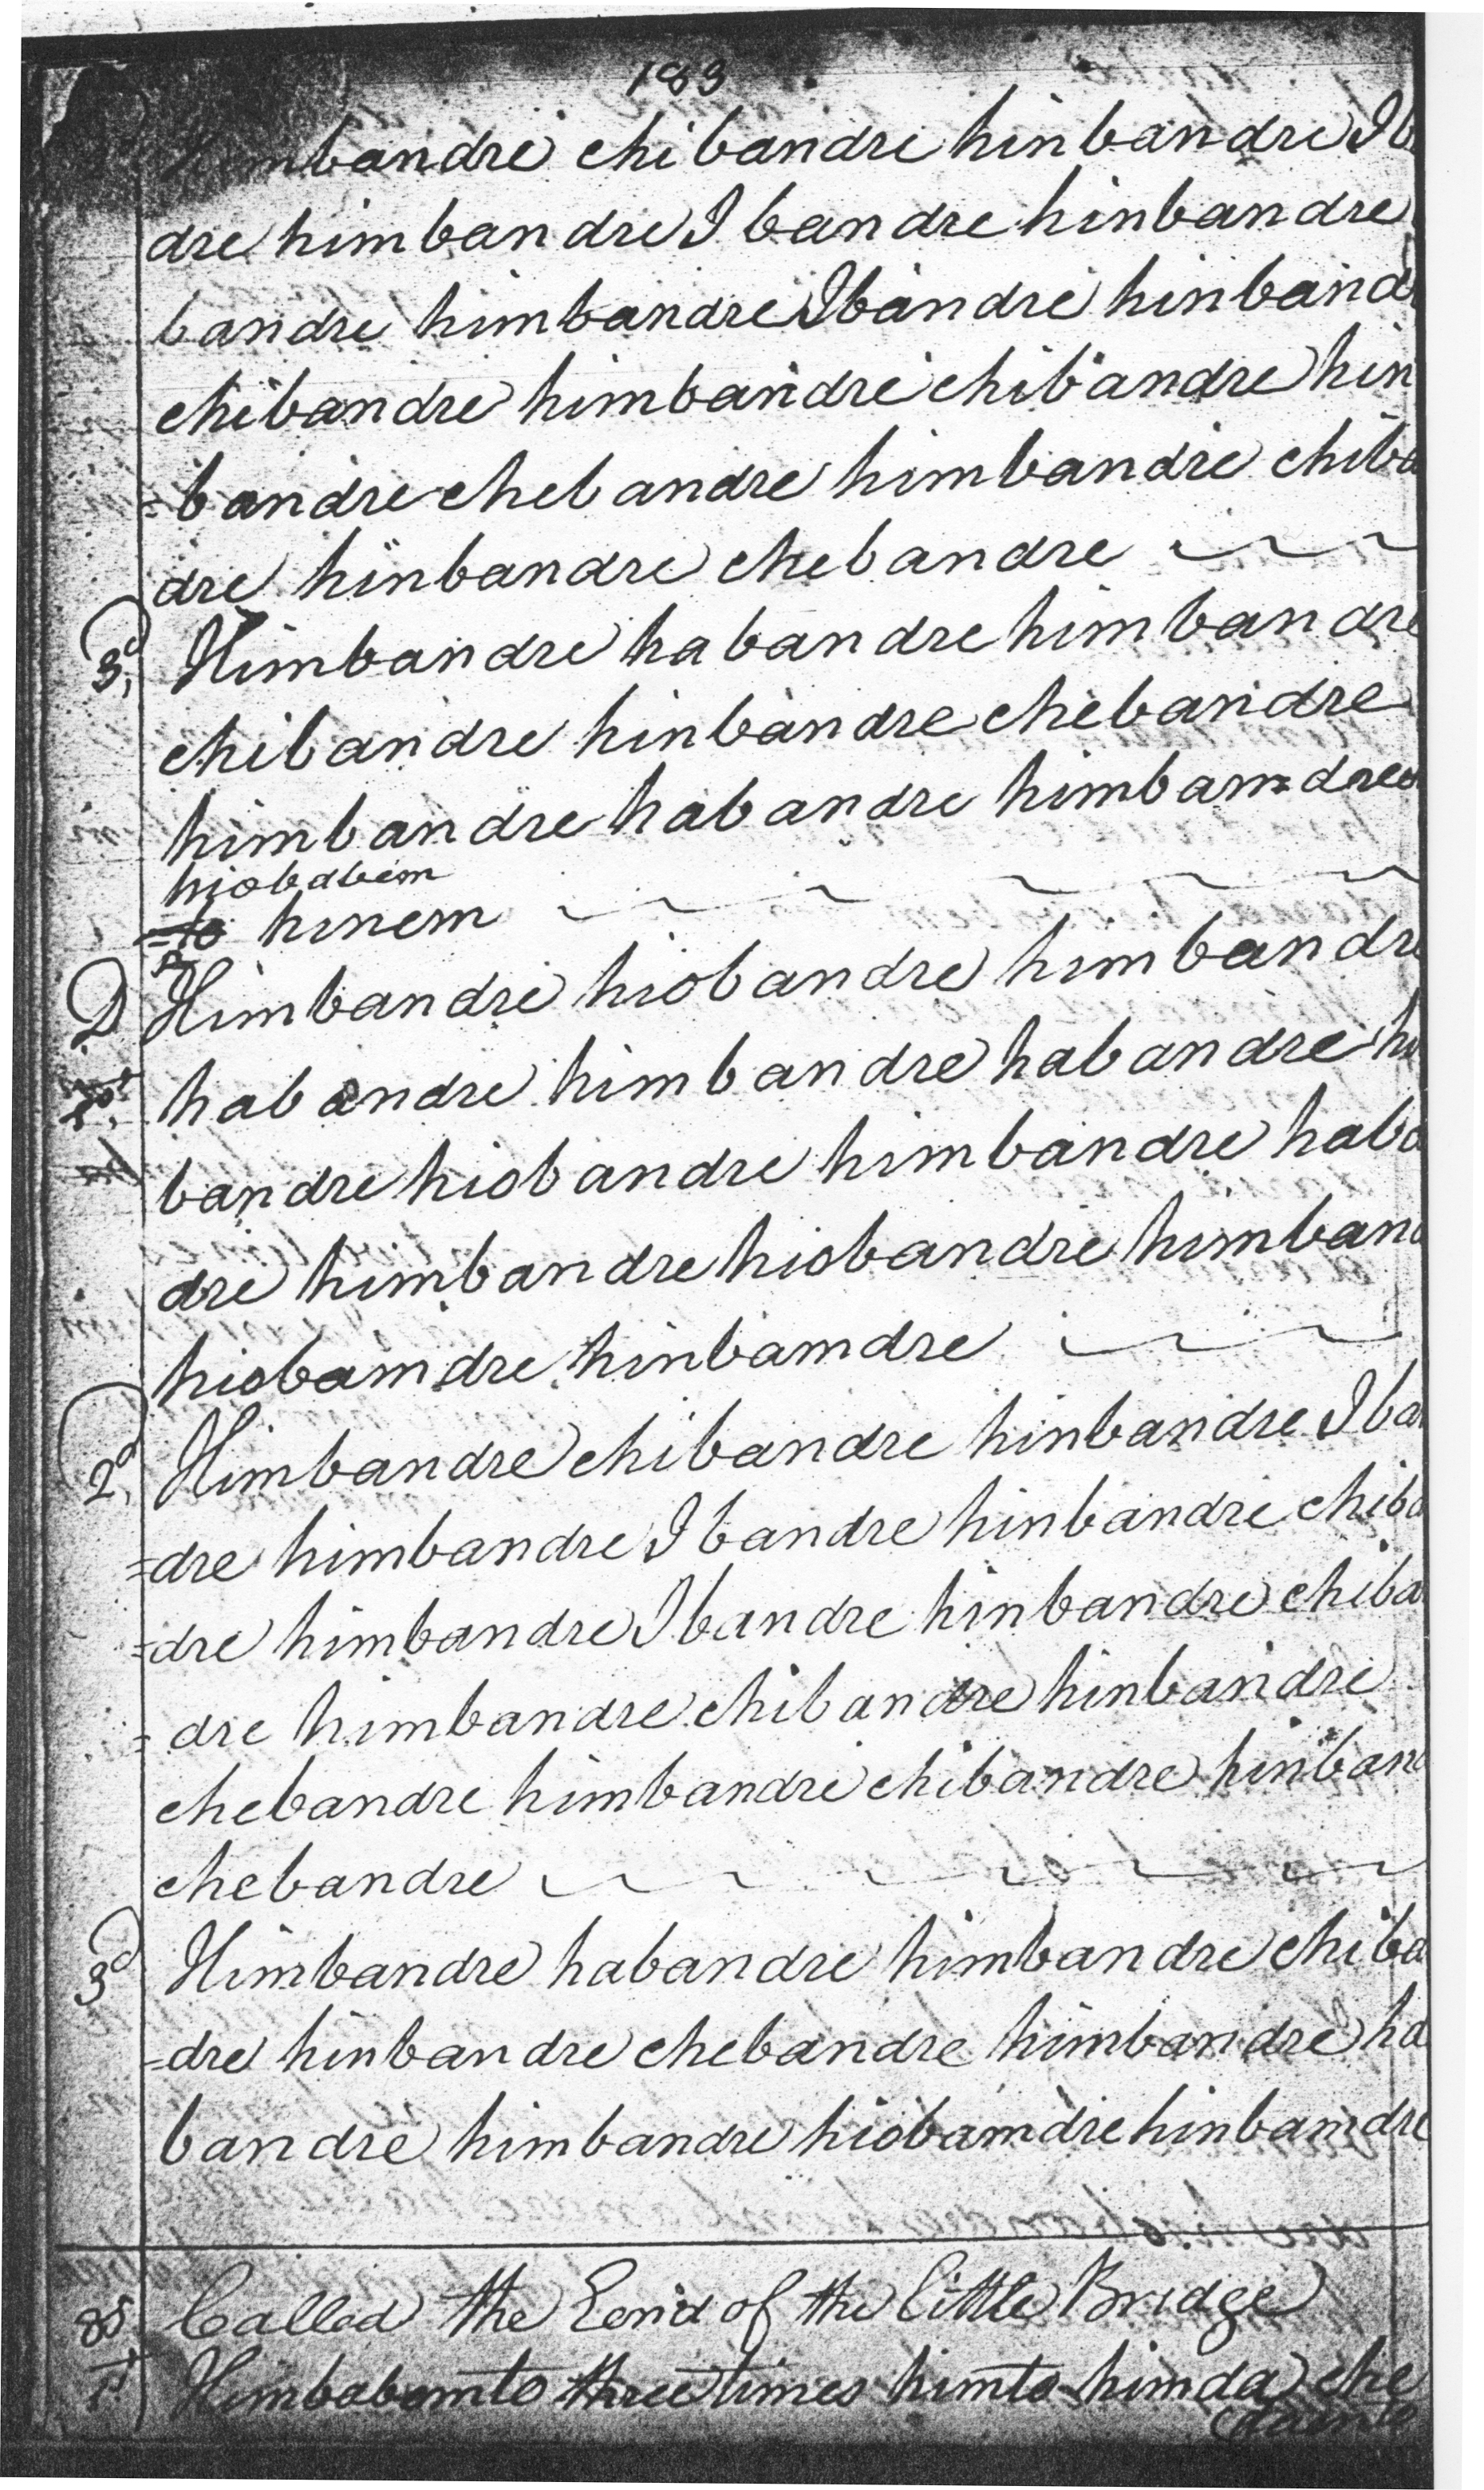 183
himbandre chibandre hinbandre Iba
dre himbandre I bandre hinbandre
bandre himbandre Ibandre hinband
chibandre himbandre chibandre hin
=bandre chebandre himbandre chiba
dre hinbandre chebandre
3d, Himbandre habandre himbandre
chibandre hinbandre chebandre
himbandre habandre himbam=dre
hiobabem
hinem
D Himbandre hiobandre himbandre
habandre himbandre habandre hi
bandre hiobandre himbandre haba
dre himbandre hiobandre himban
hiobamdre hinbamdre
2d, Himbandre chibandre hinbandre Iba
=dre himbandre I bandre hinbandre chiba
=dre himbandre Ibandre hinbandre chiba
=dre himbandre chibandre hinbandre
chebandre himbandre chibandre hinban
chebandre
3d Himbandre habandre himbandre chiba
=dre hinbandre chebandre himbandre ha
bandre himbandre hiobamdre hinbamdre
85 Called the End of the little Bridge
1st Himbabemto three times himto himda che